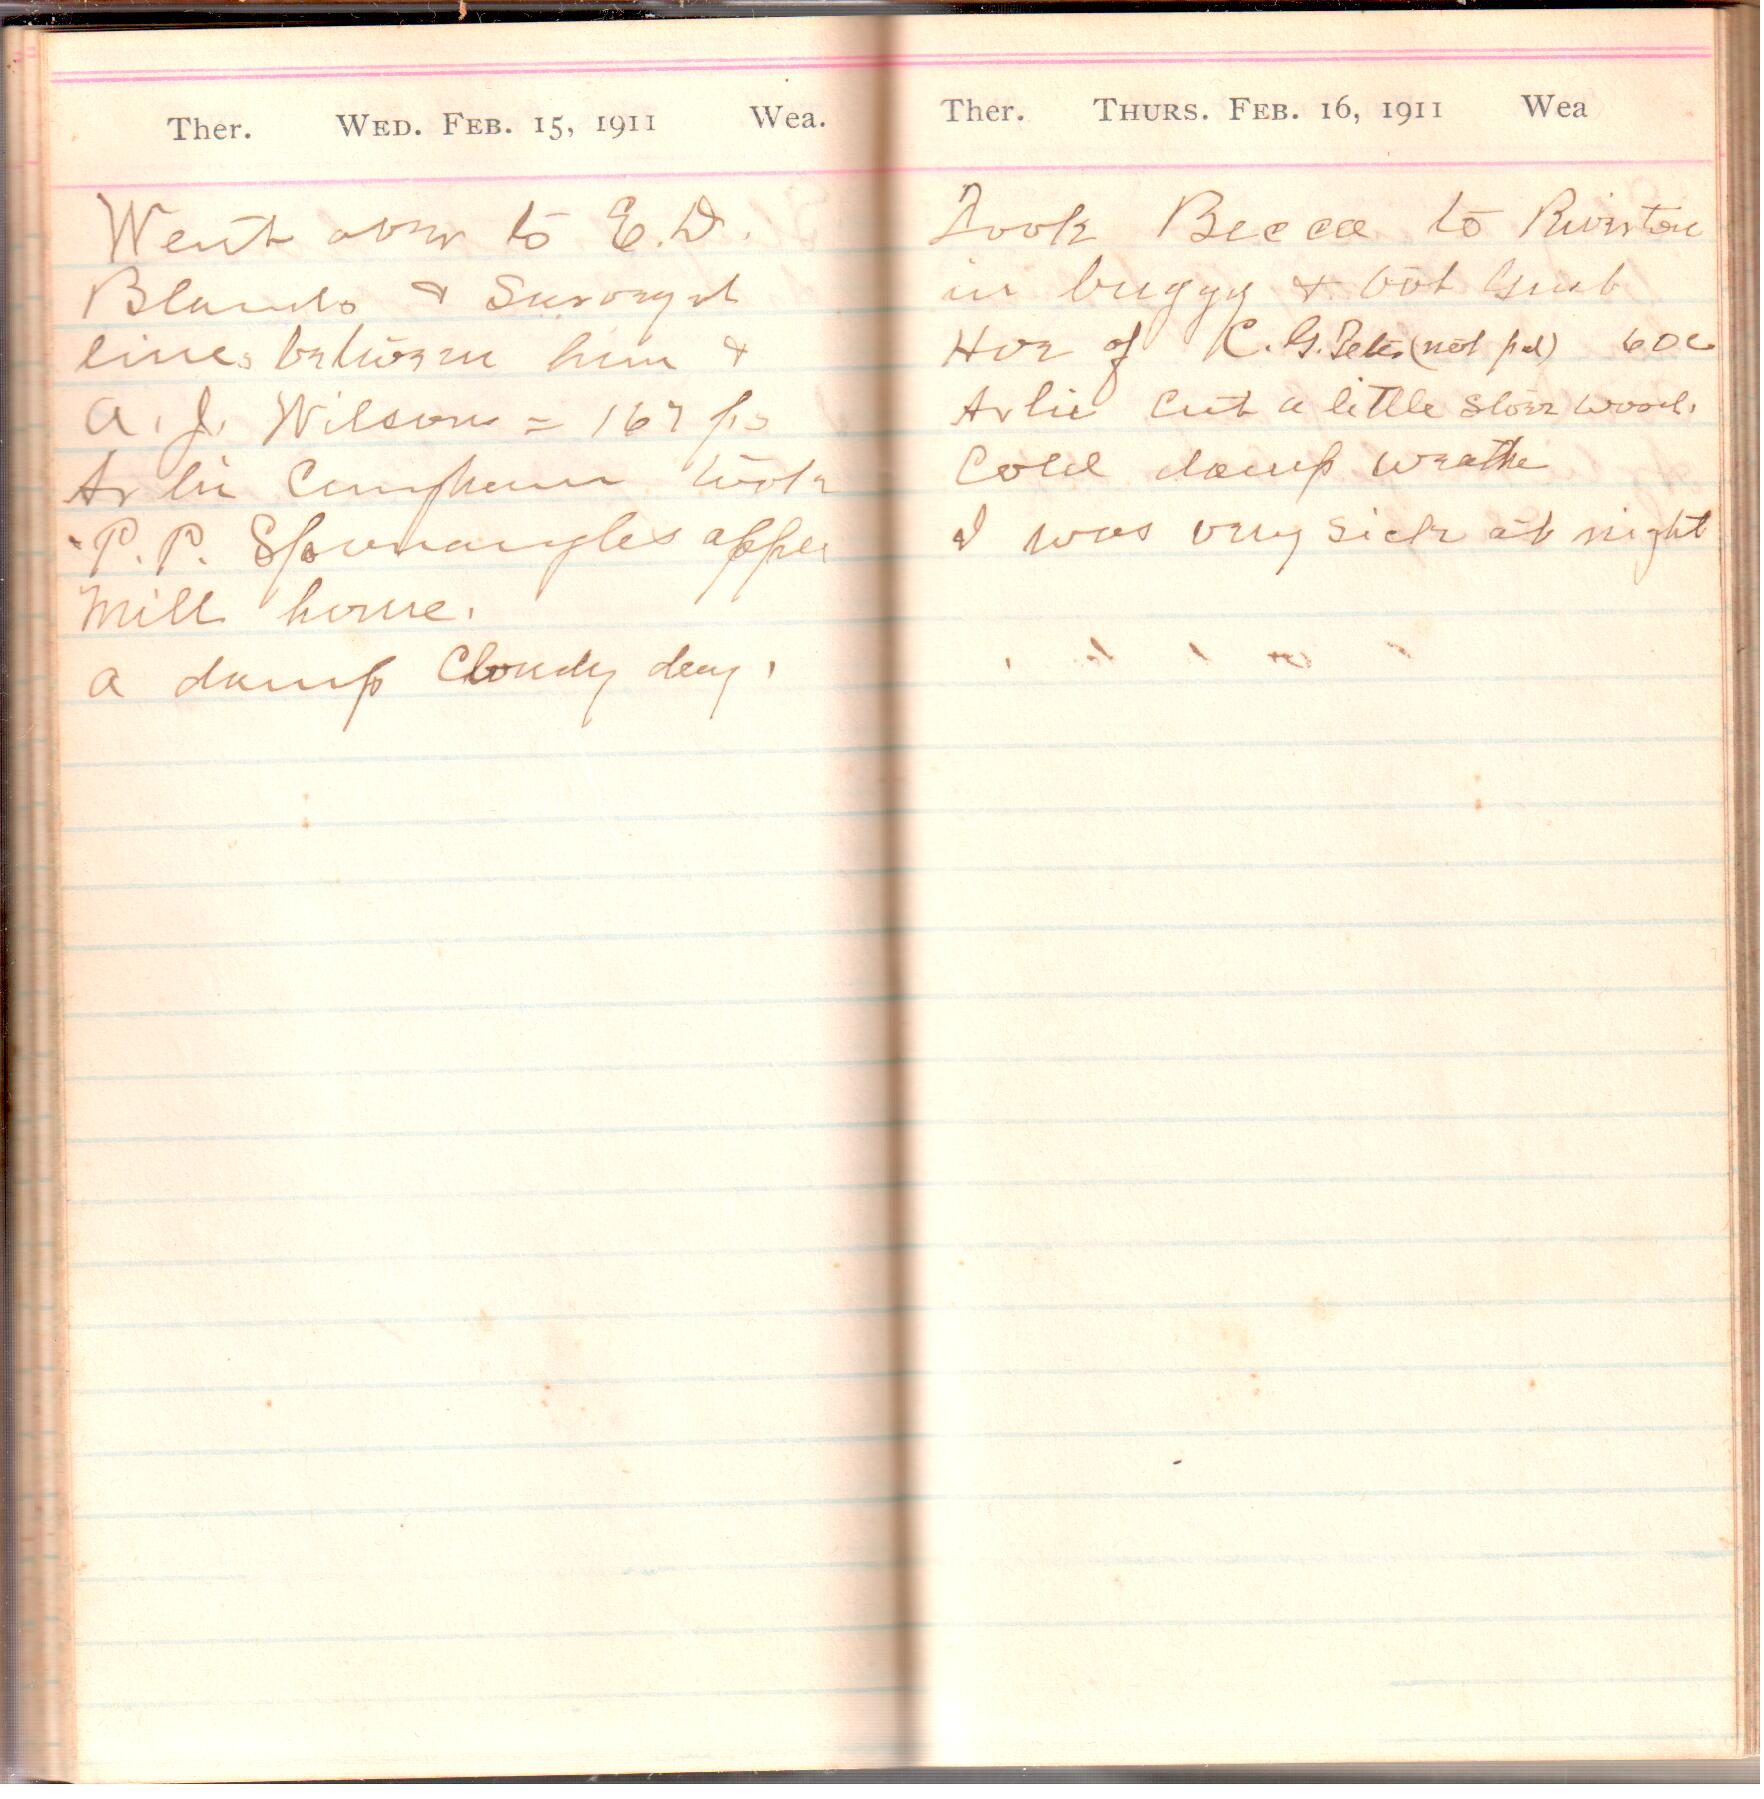 Ther. WED. FEB. 15, 1911 Wea.
Went over to E.D.
Blands & Surveyd
lines between him &
A. J. Wilson = 167 ps
Arlie Cunpham took
P.P. Sponangles apple
Mill home.
A damp Cloudy day.
Ther. THURS. FEB. 16, 1911 Wea
Took Becca to Riverton
in buggy & got Grub
Hoe of C.G. (not pd) 60c
Arlie Cut a little Stove wood.
Cold damp weathe
I was very sick at night